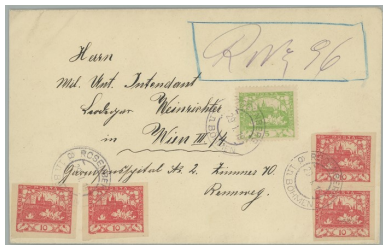 R No 96
Herrn
Md. Unt. Intendant
Leodegar Weinrichter
in Wien III/4
Garnisonsspital No 2. Zimmer 70
Rennweg.
10
10
10
10